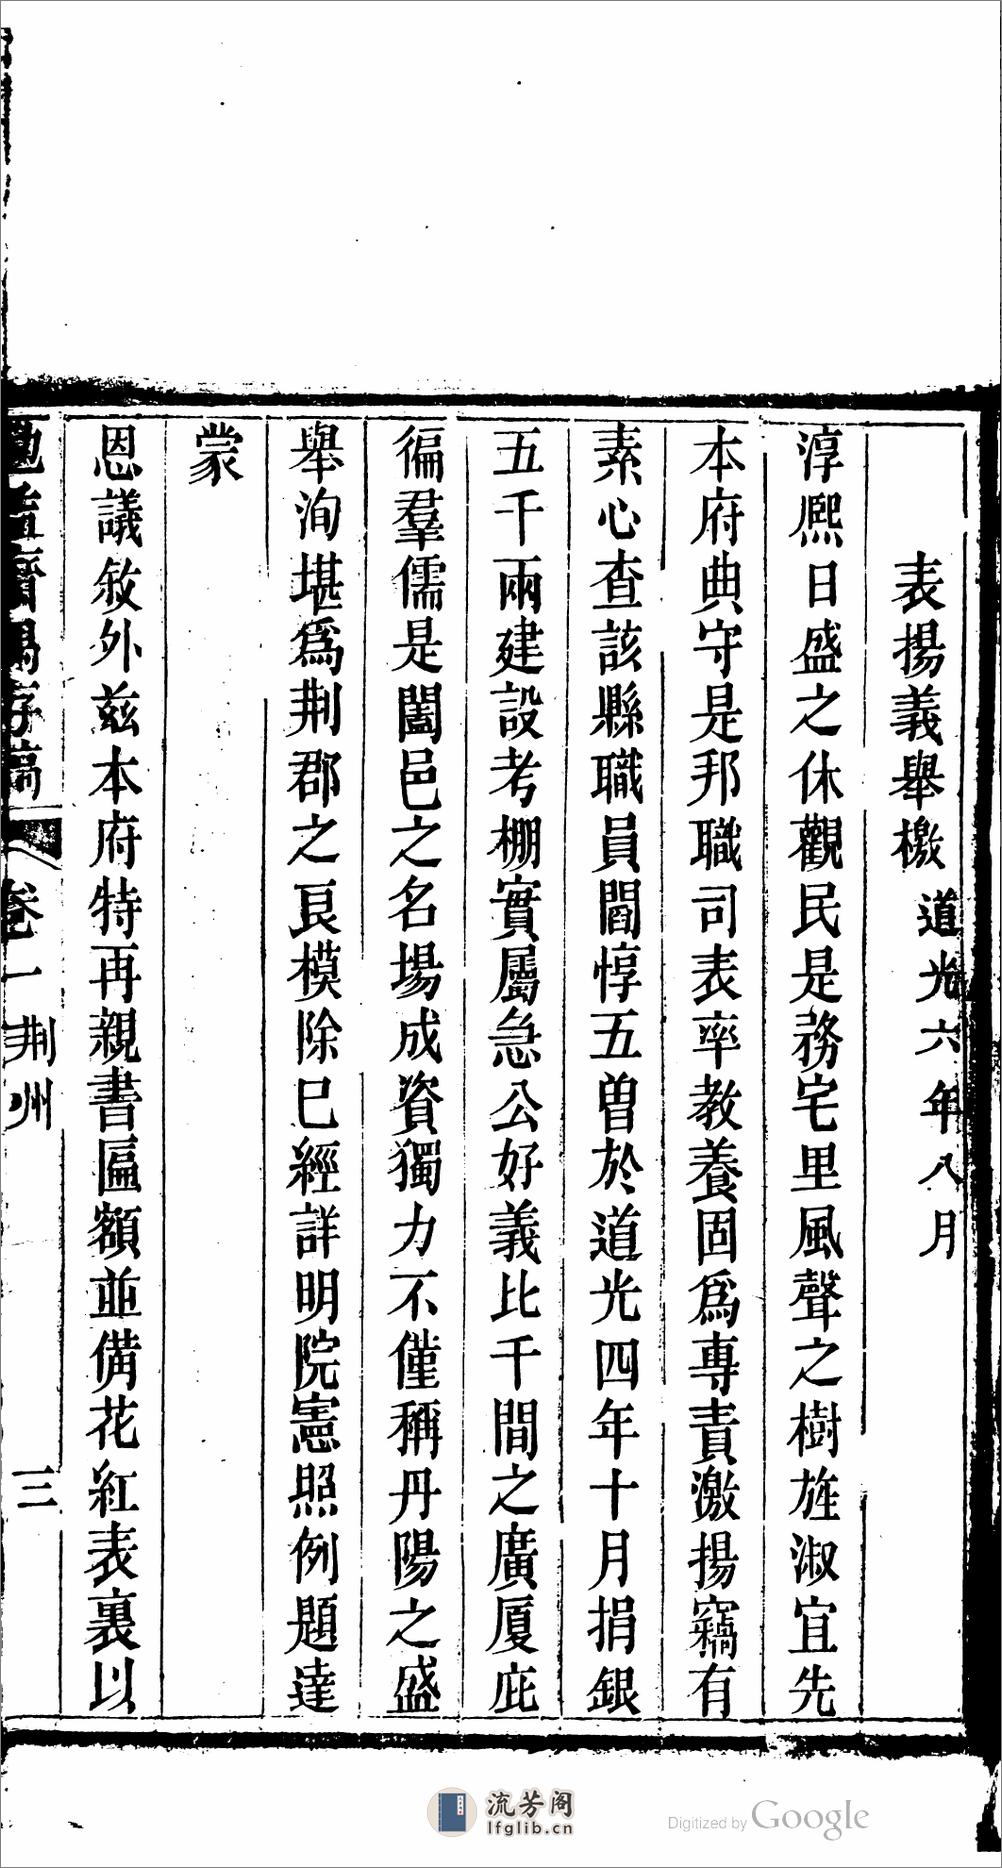 表揚義舉檄 道光六年八月
淳熈日盛之休觀民是務宅里風聲之樹旌淑宜先
本府典守是邦職司表率教養固爲專責激揚竊有
素心查該縣職員閻惇五曽於道光四年十月捐銀
五千兩建設考棚實屬急公好義比千間之廣厦庇
徧羣儒是闔邑之名場成資獨力不僅稱丹陽之盛
舉洵堪爲荆郡之良模除巳經詳明院憲照例題達
蒙
恩議敘外兹本府特再親書匾額並備花紅表裏以
存稿 卷一 荆州 三
流芳阁
lfglib.cn
Digitized by Google